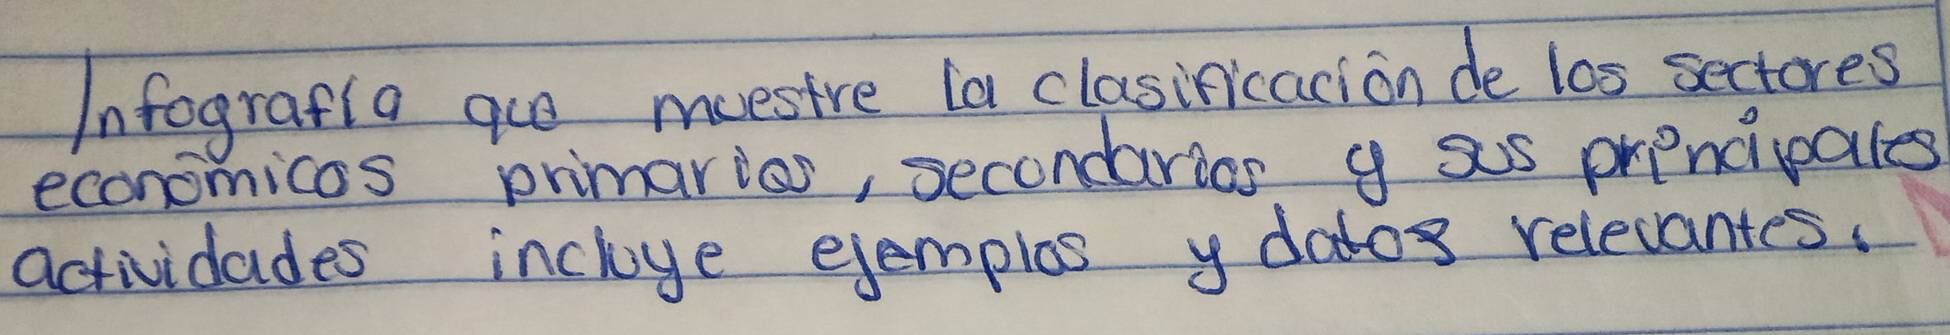 Infografía que muestre la clasificación de los sectores
económicos primarios, secondarios y sus principales
actividades incluye ejemplos y datos relevantes.